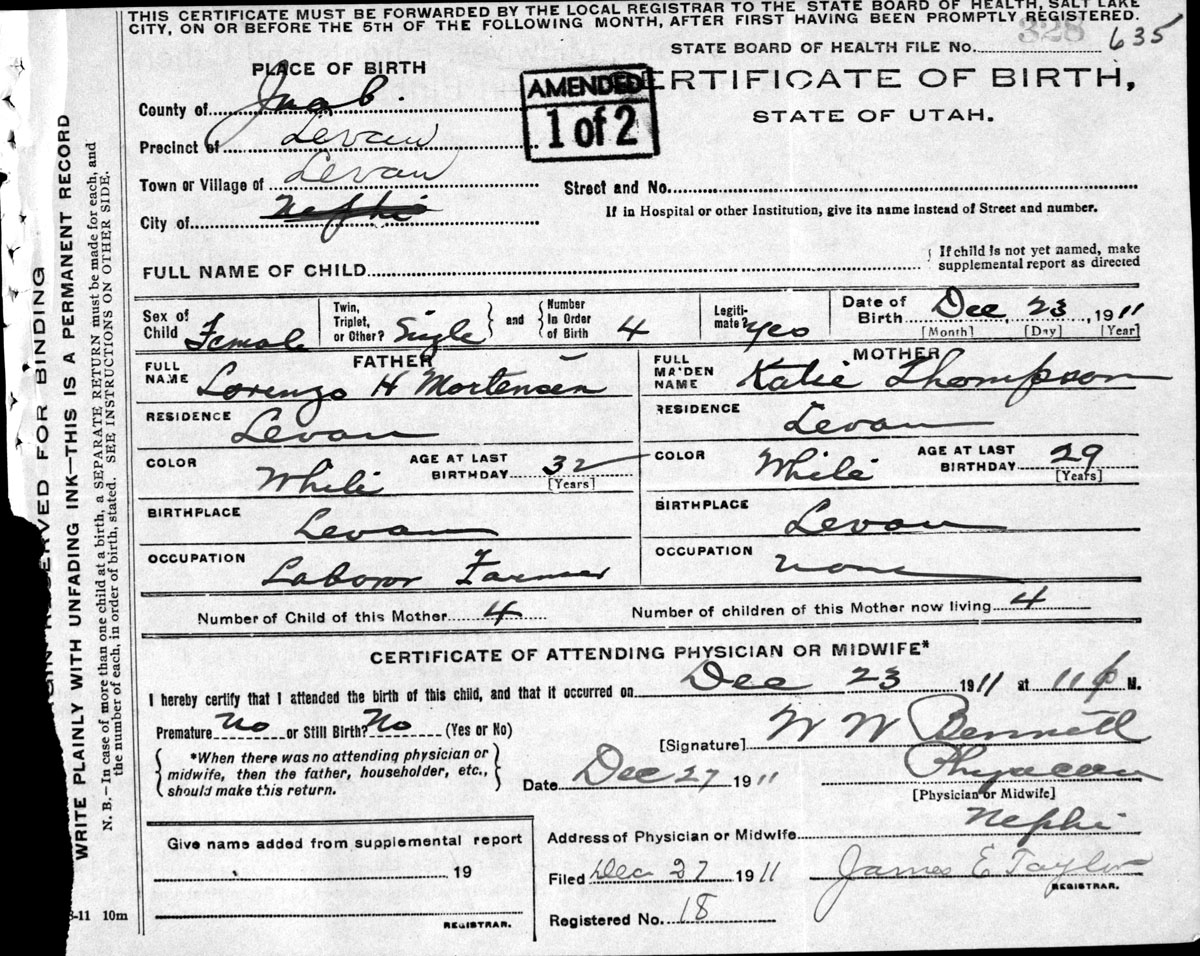 THIS CERTIFICATE MUST BE FORWARDED BY THE LOCAL REGISTRAR TO THE STATE BOARD OF HEALTH, SALT LAKE
CITY, ON OR BEFORE THE 5TH OF THE FOLLOWING MONTH, AFTER FIRST HAVING BEEN PROMPTLY REGISTERED.
STATE BOARD OF HEALTH FILE No. 328 635
PLACE OF BIRTH
AMENDED
1 of 2
ERTIFICATE OF BIRTH,
STATE OF UTAH.
County of Juab.
Precinct of Levan
Town or Village of Levan
Street and No.
City of Nephi
If in Hospital or other Institution, give its name instead of Street and number.
FULL NAME OF CHILD
{ If child is not yet named, make
supplemental report as directed
Sex of Child Female
Twin, Triplet, or Other? Single } and { Number In Order of Birth 4
Legitimate? yes
Date of Birth Dec 23, 1911
[Month] [Day] [Year]
FATHER
FULL NAME Lorenzo H Mortensen
MOTHER
FULL MAIDEN NAME Katie Thompson
RESIDENCE Levan
RESIDENCE Levan
COLOR White
AGE AT LAST BIRTHDAY 32
[Years]
COLOR White
AGE AT LAST BIRTHDAY 29
[Years]
BIRTHPLACE Levan
BIRTHPLACE Levan
OCCUPATION Laboror Farmer
OCCUPATION none
Number of Child of this Mother 4
Number of children of this Mother now living 4
CERTIFICATE OF ATTENDING PHYSICIAN OR MIDWIFE*
I hereby certify that I attended the birth of this child, and that it occurred on Dec 23 1911 at 11 P M.
Premature No or Still Birth? No (Yes or No)
[Signature] W W Bennett
{ *When there was no attending physician or
midwife, then the father, householder, etc.,
should make this return. }
Date Dec 27 1911
Physician
[Physician or Midwife]
Address of Physician or Midwife Nephi
Give name added from supplemental report
19
REGISTRAR.
Filed Dec 27 1911
James E Taylor
REGISTRAR.
Registered No. 18
3-11 10m
RESERVED FOR BINDING
WRITE PLAINLY WITH UNFADING INK—THIS IS A PERMANENT RECORD
N. B.—In case of more than one child at a birth, a SEPARATE RETURN must be made for each, and
the number of each, in order of birth, stated. SEE INSTRUCTIONS ON OTHER SIDE.